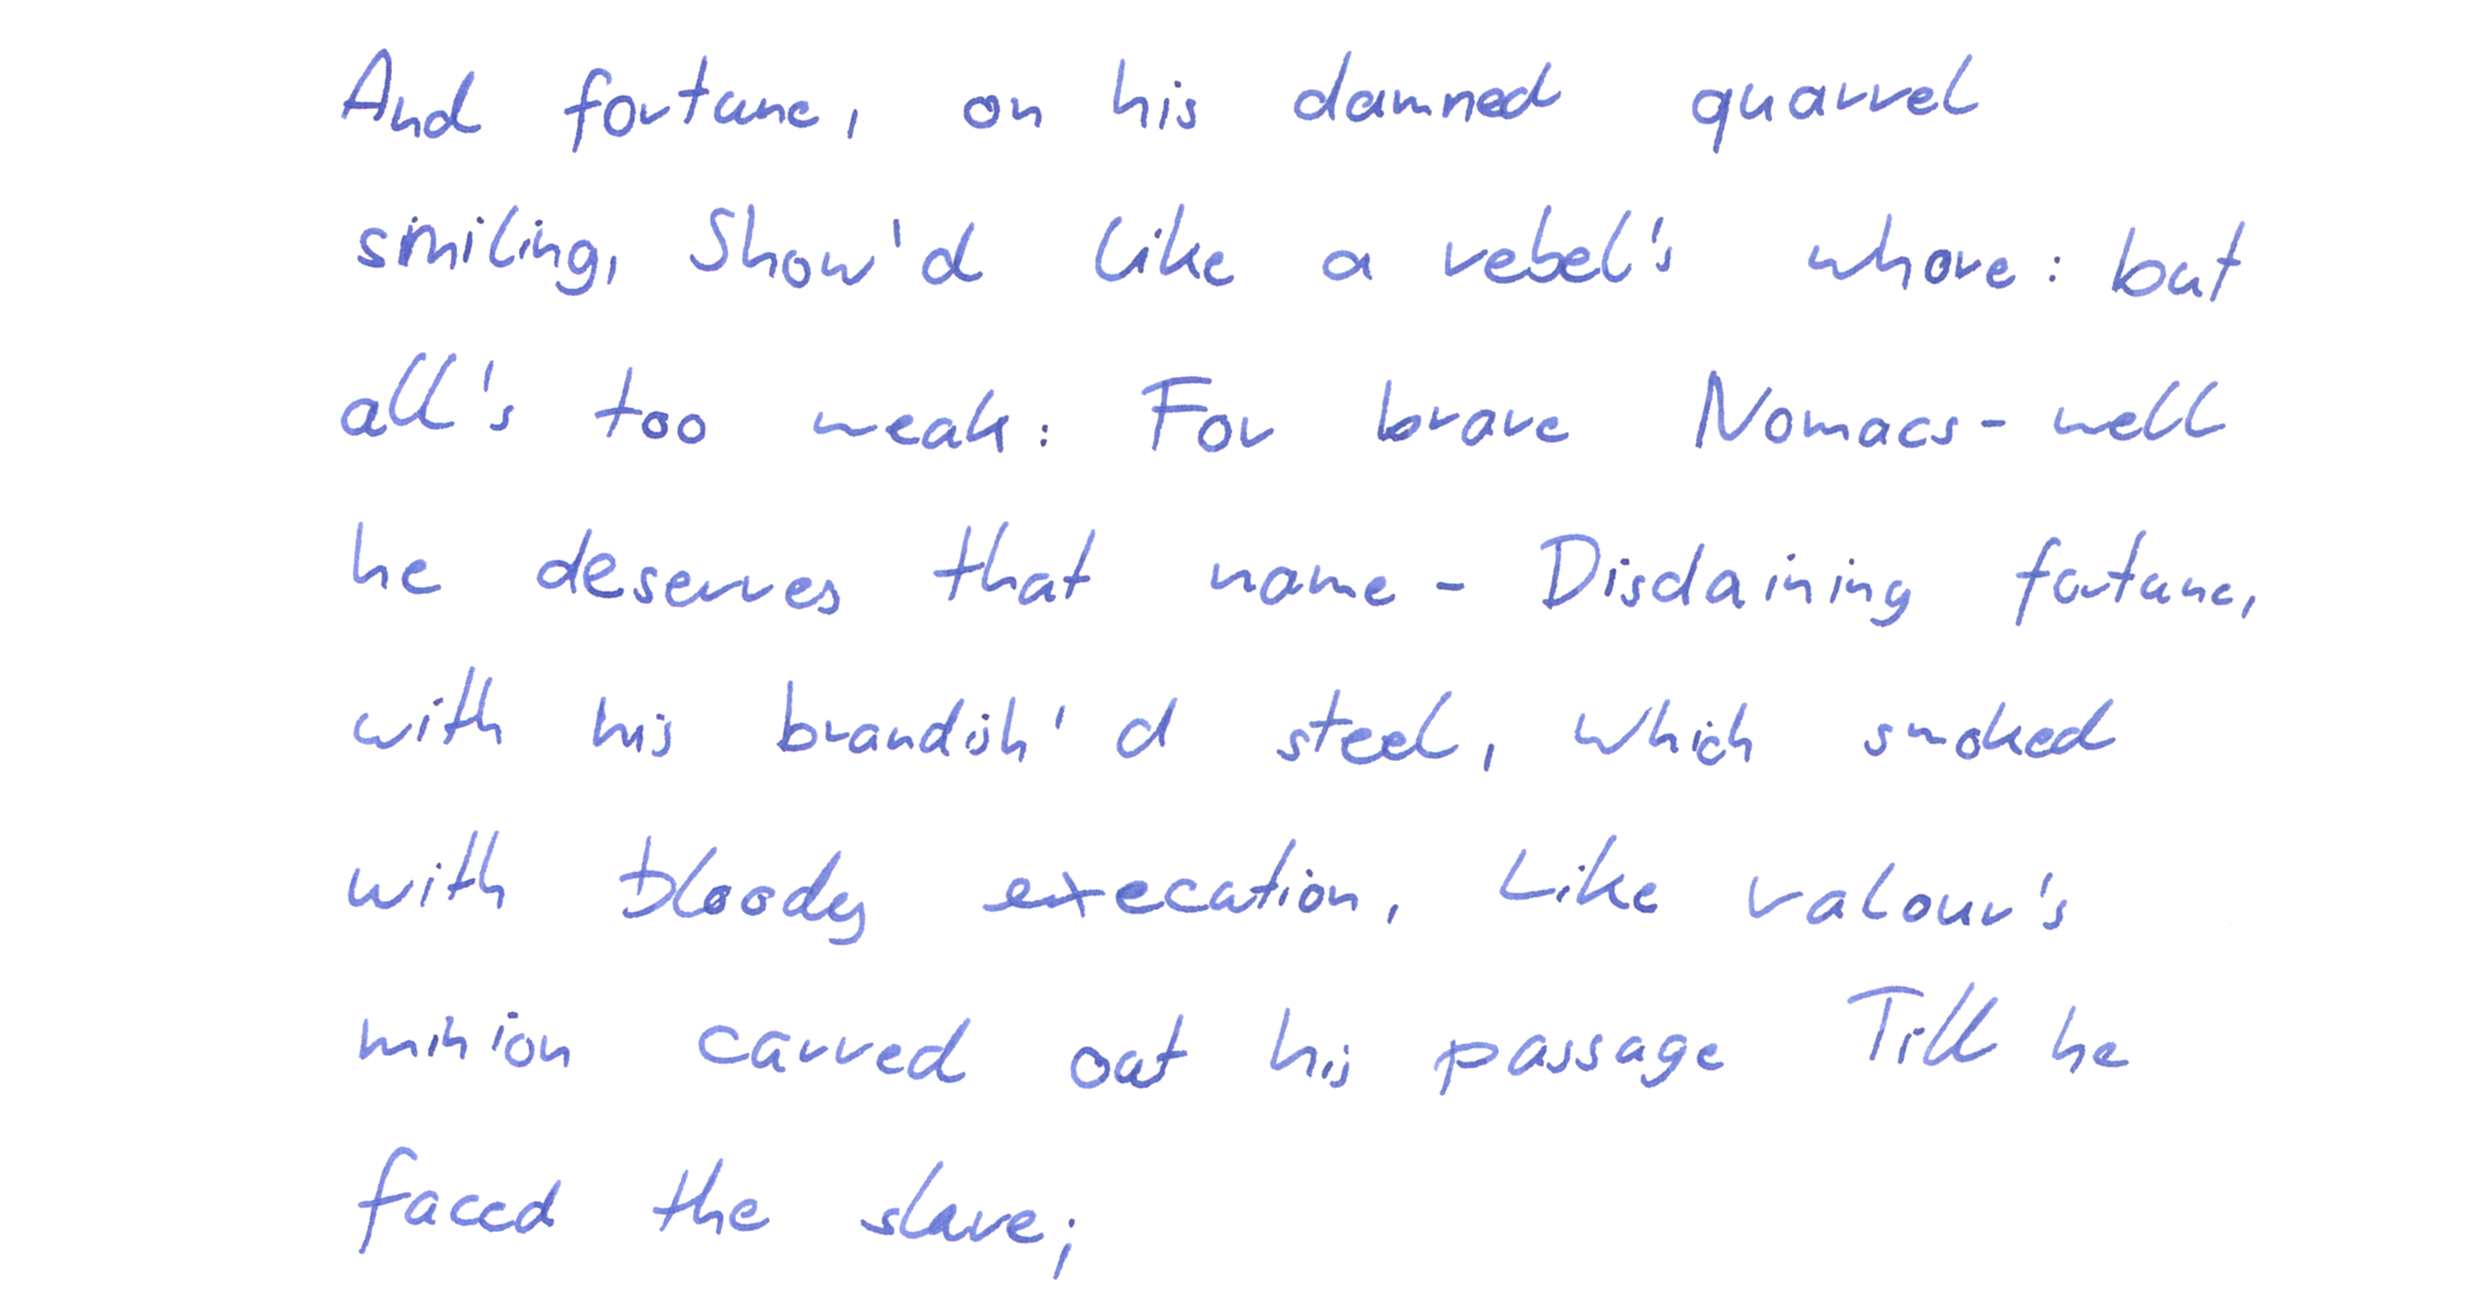 And fortune, on his damned quarrel
smiling, Show'd like a rebel's whore: but
all's too weak: For brave Nomacs - well
he deserves that name - Disdaining fortune,
with his brandish'd steel, Which smoked
with bloody execution, Like valour's
minion carved out his passage Till he
faced the slave;